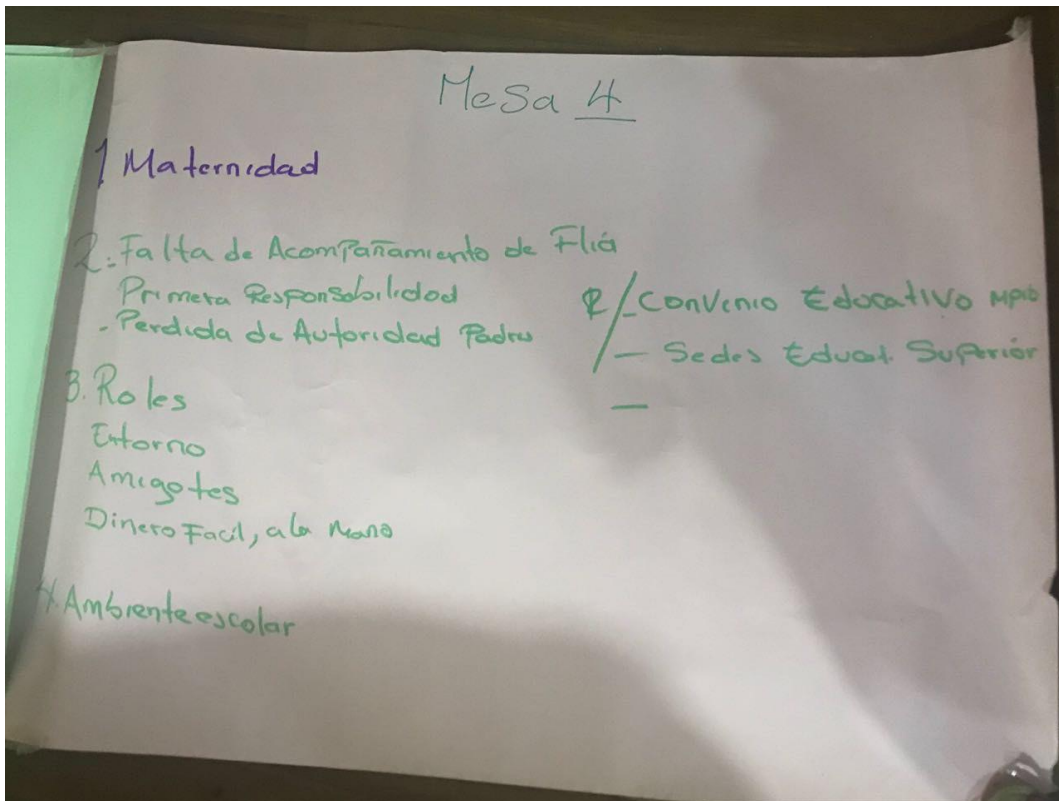 Mesa 4
1 Maternidad
2. Falta de Acompañamiento de Flia
Primera Responsabilidad
- Perdida de Autoridad Padres
R/- Convenio Educativo MPIO
- Sedes Educat. Superior
-
3. Roles
Entorno
Amigotes
Dinero Facil, a la Mano
4. Ambiente escolar